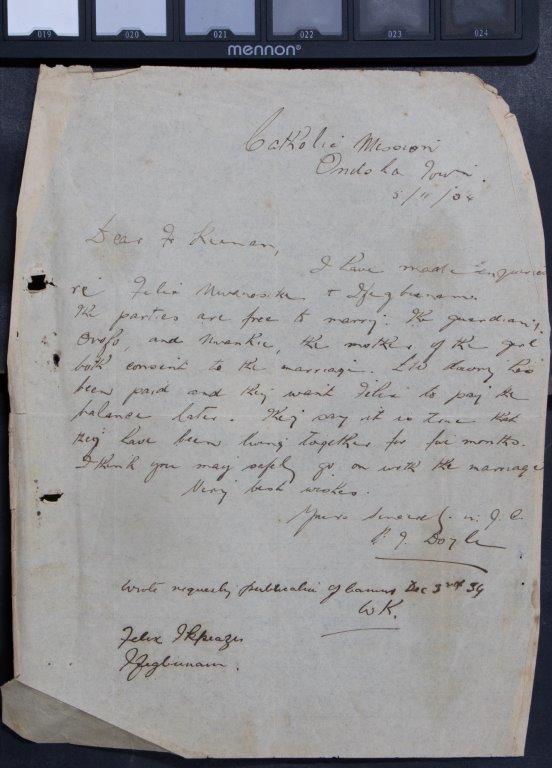 019 020 021 022 023 024
mennon®
Catholic Mission
Onitsha Town.
Dear Fr Keenan,
I have made enquiries
re Felix Nwanosike & Ifegbunam.
The parties are free to marry. The guardian,
and Nwankie, the mother of the girl
both consent to the marriage. dowry has
been paid and they want Felix to pay the
balance later. They say it is true that
they have been living together for five months.
I think you may safely go on with the marriage
Very best wishes.
Yours sincerely in J.C.
P. J. Doyle
Wrote requesting publication of banns Dec 3rd 34
WK.
Felix Ikpeazu
Ifegbunam.